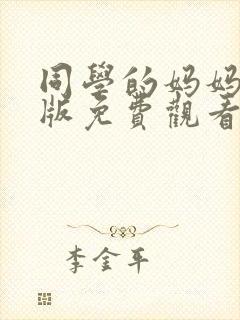 同學的妈妈
版免費觀看
李金平